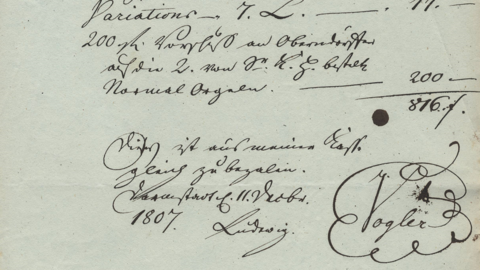 Variations — 7. L. — 11. —
200 fl. Vorschuß an Oberndörffer
auf die 2. von Sr. K. H. bestelte
Normal Orgeln. — 200 —
816. f.
Dieses ist aus meiner Casse
gleich zu bezalen.
Darmstadt d. 11. Decbr.
1807. Ludewig.
Vogler